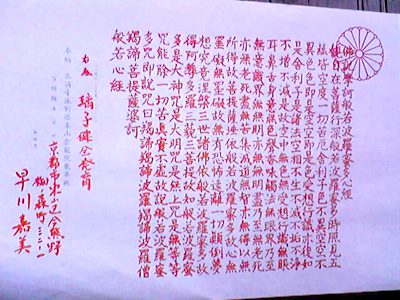 佛説摩訶般若波羅蜜多心経
観自在菩薩行深般若波羅蜜多時照見五
蘊皆空度一切苦厄舎利子色不異空空不
異色色即是空空即是色受想行識亦復如
是舎利子是諸法空相不生不滅不垢不浄
不増不減是故空中無色無受想行識無眼
耳鼻舌身意無色聲香味觸法無眼界乃至
無意識界無無明亦無無明盡乃至無老死
亦無老死盡無苦集滅道無智亦無得以無
所得故菩提薩埵依般若波羅蜜多故心無
罣礙無罣礙故無有恐怖遠離一切顛倒夢
想究竟涅槃三世諸佛依般若波羅蜜多故
得阿耨多羅三藐三菩提故知般若波羅蜜
多是大神呪是大明呪是無上呪是無等等
呪能除一切苦真實不虚故説般若波羅蜜
多呪即説呪曰羯諦羯諦波羅羯諦波羅僧
羯諦菩提薩婆訶
般若心経
右為 璃子健全發育
奉納
京都市東山区今熊野
早川嘉美